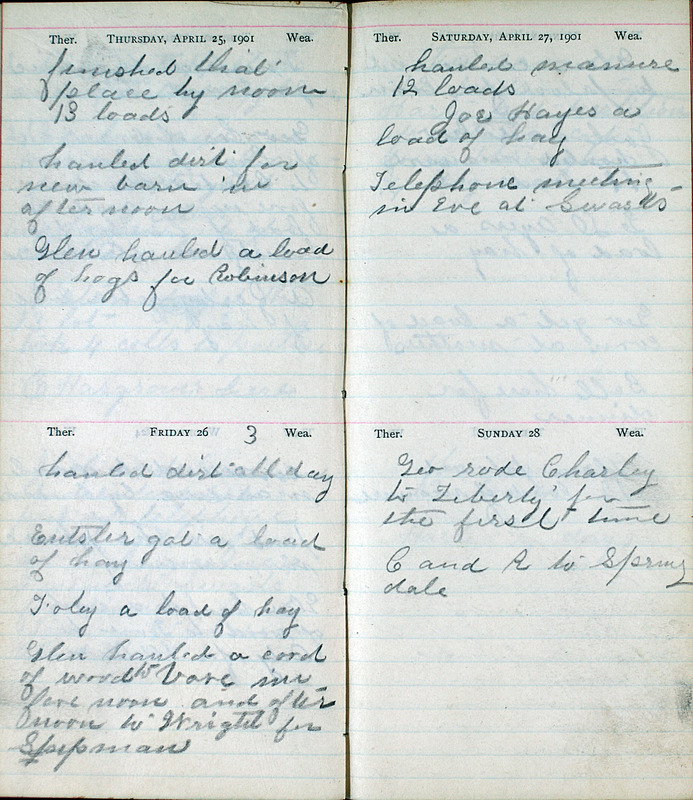 Ther. THURSDAY, APRIL 25, 1901 Wea.
finished that
place by noon
13 loads
hauled dirt for
new barn in
afternoon
Glen hauled a load
of hogs for Robinson
Ther. FRIDAY 26 3 Wea.
hauled dirt all day
Entsler got a load
of hay
Foley a load of hay
Glen hauled a cord
of wood to Vore in
fore noon and after
noon to Wright for
Shipman
Ther. SATURDAY, APRIL 27, 1901 Wea.
hauled manure
12 loads
Joe Hayes a
load of hay
Telephone meeting
in Eve at
Ther. SUNDAY 28 Wea.
Geo rode Charley
to Liberty for
the first time
C and R to Spring
dale